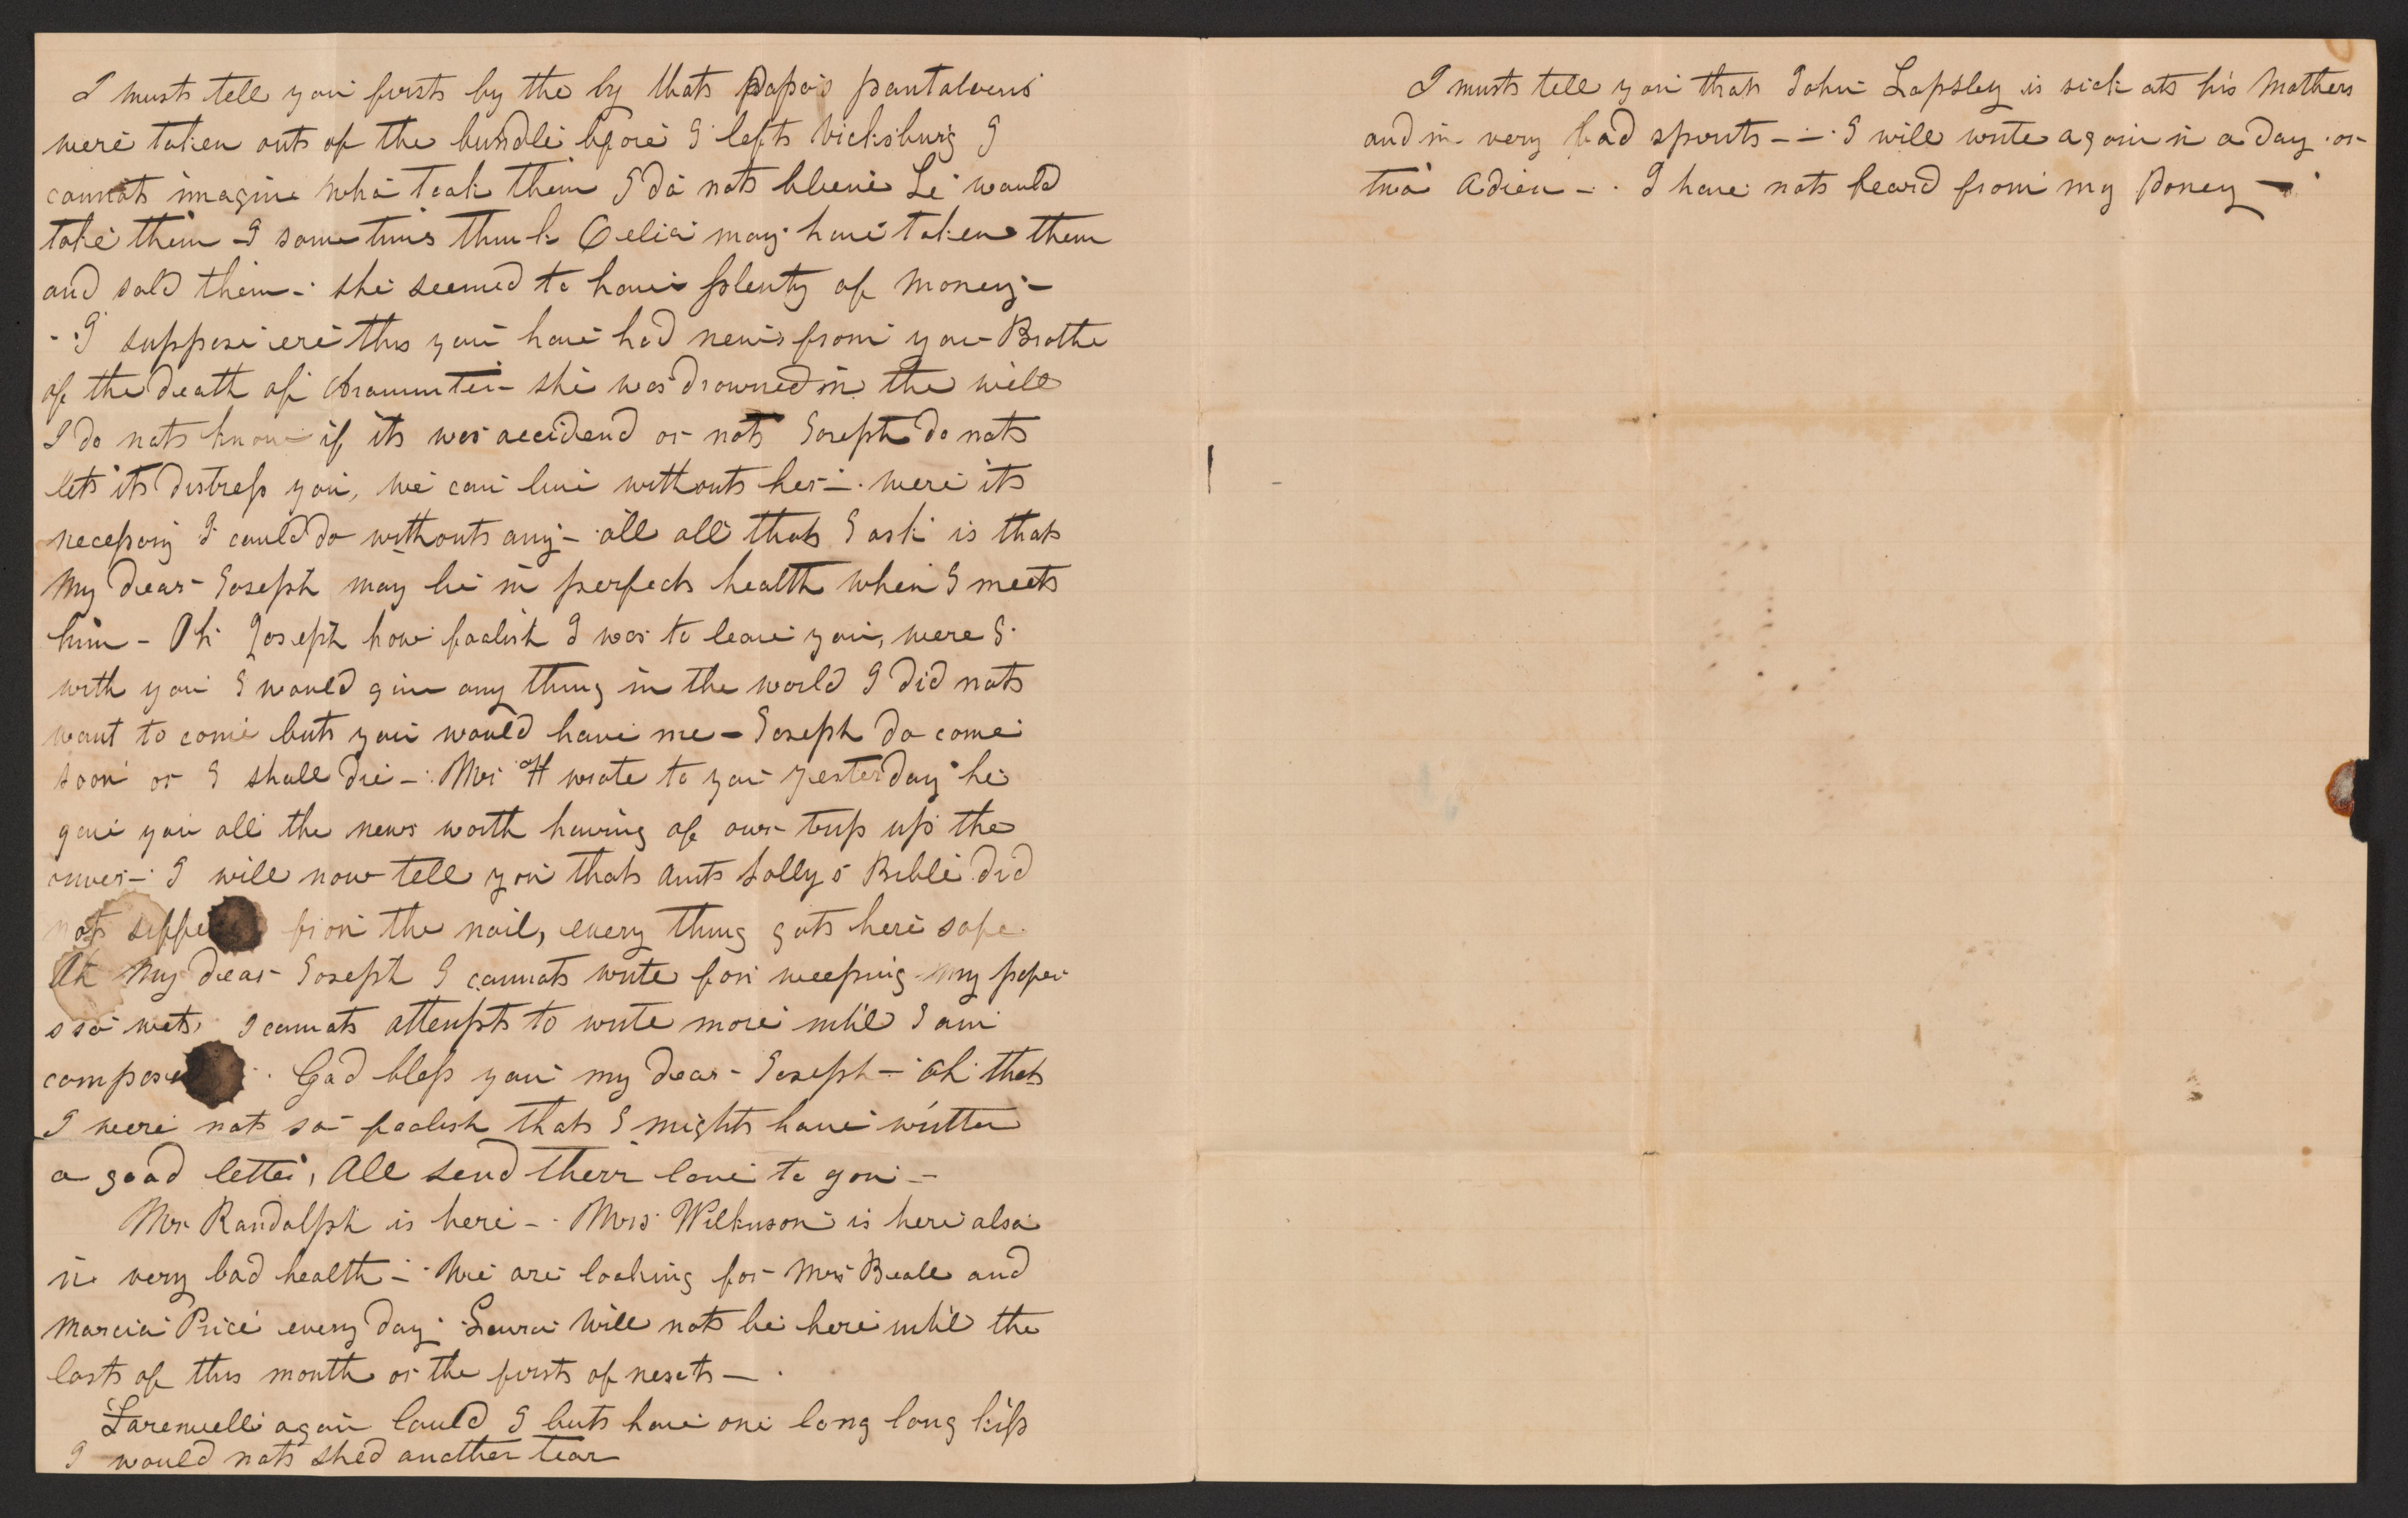 I must tell you first by the by that Papa's pantaloons
were taken out of the bundle before I left Vicksburg I
cannot imagine who took them I do not believe Le would
take them - I some times think Celia may have taken them
and sold them - she seemed to have plenty of money -
- I suppose ere this you have had news from your Brothe
of the death of she was drowned in the well
I do not know if it was accidend or not Joseph do not
let it distress you, we can live without her - were it
necessary I could do without any - all all that I ask is that
my dear Joseph may be in perfect health when I meet
him - Oh Joseph how foolish I was to leave you, were I
with you I would give any thing in the world I did not
want to come but you would have me - Joseph do come
soon or I shall die - Mr H wrote to you yesterday he
gave you all the news worth having of our trip up the
river - I will now tell you that Aunt Sally's Bible did
not suffer from the nail, every thing got here safe
Oh my dear Joseph I cannot write for weeping my paper
s so wet, I cannot attempt to write more until I am
compose God bless you my dear Joseph - oh that
I were not so foolish that I might have written
a good letter, All send their love to you -
Mr Randolph is here - Mrs Wilkinson is here also
in very bad health - We are looking for Mrs Beall and
Marcia Price every day Laura will not be here until the
last of this month or the first of next -
Farewell again Could I but have one long long kiss
I would not shed another tear
I must tell you that John Lapsley is sick at his Mothers
and in very bad spirits - - I will write again in a day or
two Adieu - I have not heard from my Poney -